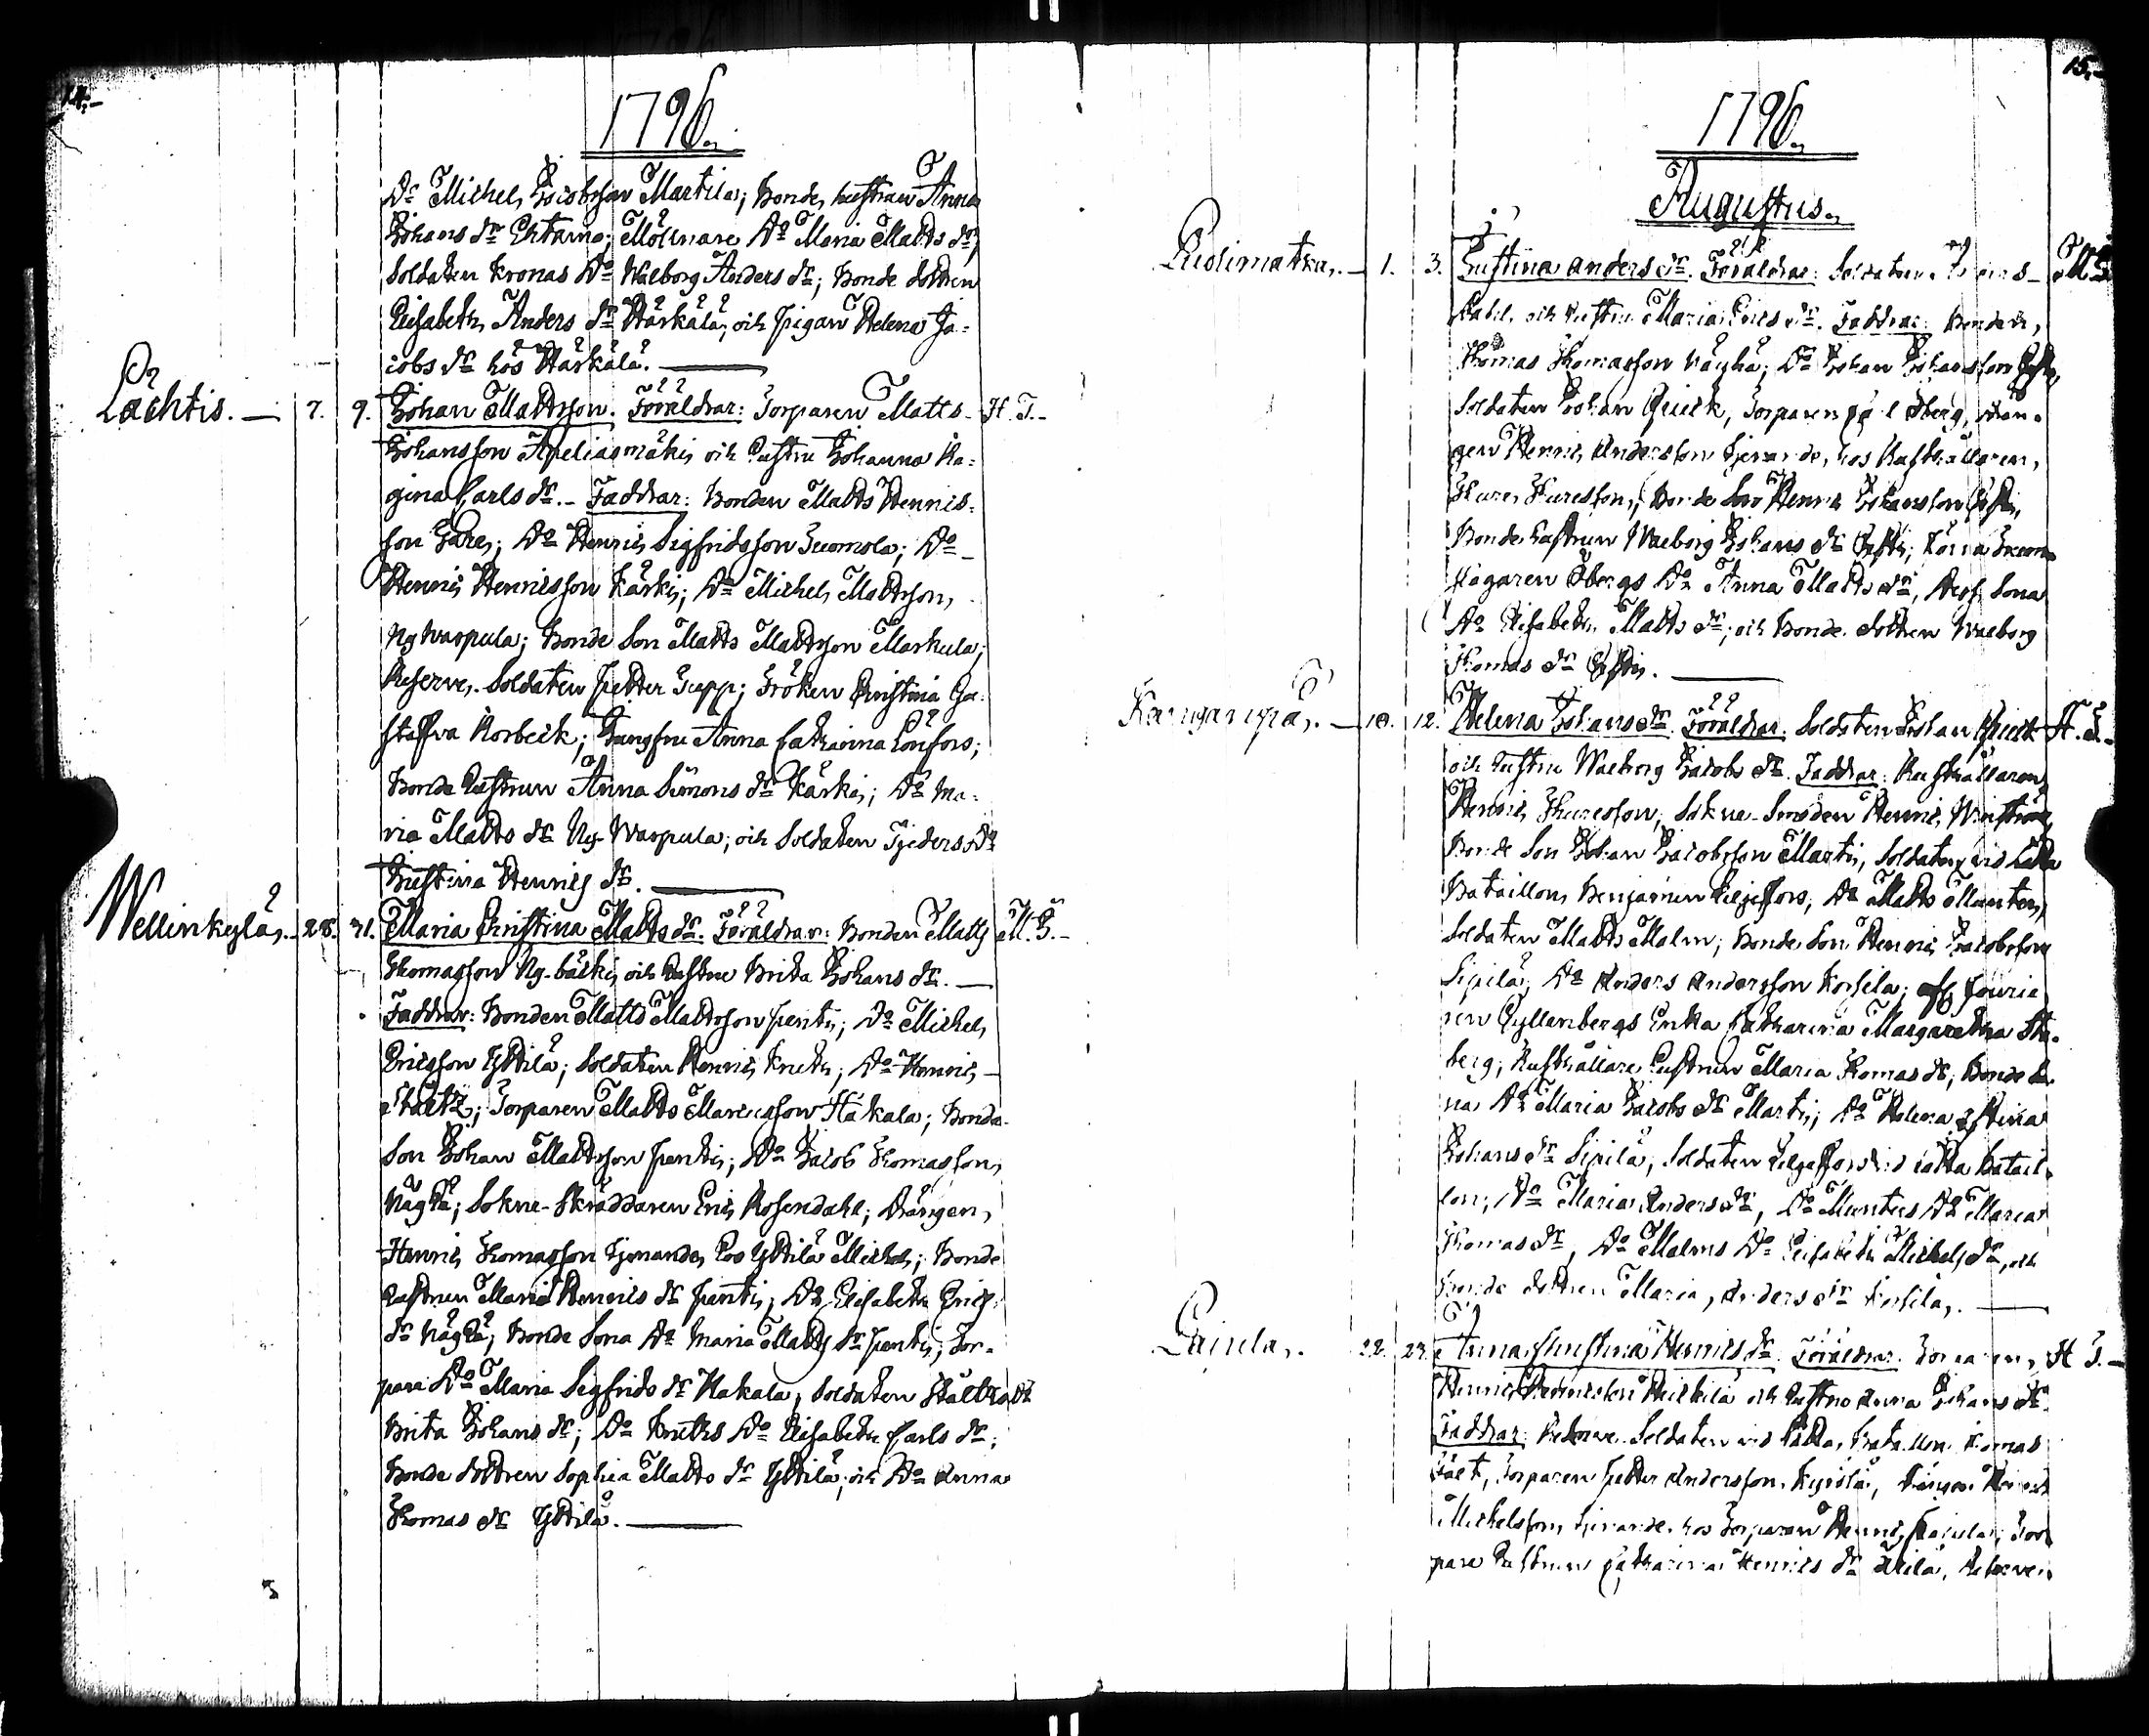 14.
1796.
Do Michel Jacobsson Martila; Bonde hustrun Anna
Johans dr Ertamo; Mölnare Do Maria Matts dr;
Soldaten Kronas Do Walborg Anders dr; Bonde dottren
Elisabeth Anders dr Härkälä; och pigan Helena Ja-
cobs dr hos Härkälä.
Lachtis. 7. 9. Johan Mattsson. Föräldrar: Torparen Matts H. T.
Johansson Apeliasmäki och hustru Johanna Re-
gina Carls dr. Faddrar: Bonden Matts Henrics-
son; Do Henric Sigfridsson Tuomola; Do
Henric Henricsson Kärki; Do Michel Mattsson
Ny Waspula; Bonde Son Matts Mattsson Markula;
Reserve Soldaten Petter Tupp; Fröken Christina Gu-
staffva Norbeck; Jungfru Anna Catharina Lönfors;
Bonde hustrun Anna Simons dr Kärki; Do Ma-
ria Matts dr Ny-Waspula; och Soldaten Tjeders Do
Christina Henrics dr.
Wellinkylä. 28. 31. Maria Christina Matts dr. Föräldrar: Bonden Matts M. G.
Thomasson Ny-bäcki och hustru Brita Johans dr.
Faddrar: Bonden Matts Mattsson Pentti; Do Michel
Ericsson Yttilä; Soldaten Henric Knuth; Do Henric
Stolt; Torparen Matts Hakala; Bonde
Son Johan Mattsson Pentti; Do Jacob Thomasson
Näyhä; Sokne-Skräddaren Eric Rosendahl; Drängen
Henric Thomasson tjenande hos Yttilä Michel; Bonde
hustrun Maria Henrics dr Pentti; Do Elisabeth Erics
dr Näyhä; Bonde Sona Do Maria Matts dr Pentti; Tor-
pare Do Maria Sigfrids dr Hakala; Soldaten Stolts Do
Brita Johans dr; Do Knuths Do Elisabeth Carls dr;
Bonde dottren Sophia Matts dr Yttilä; och Do Anna
Thomas dr Yttilä.
15.
1796.
Augustus.
1. 3. Justina Anders dr. Föräldrar: Soldaten Anders M. G.
och hustru Maria Erics dr. Faddrar: Bonden
Thomas Thomasson Näyhä; Do Johan Johansson
Soldaten Johan Quick, Torparen Öberg, Drän-
gen Henric Andersson tjenande hos Rusthållaren
Thure Thuresson; Bonde Son Henric Johansson
Bonde hustrun Walborg Johans dr
Öbergs Do Anna Matts dr, Sona
Do Elisabeth Matts dr; och Bonde dottren Walborg
Thomas dr
Kangarspä. 10. 12. Helena Johans dr. Föräldrar: Soldaten Johan Quick H. T.
och hustru Walborg Jacobs dr. Faddrar: Rusthållaren
Henric Thuresson; Sokne-Smeden Henric
Bonde Son Johan Jacobsson Martti; Soldaten vid Lätta
Bataillon Benjamin; Do Matts Munter;
Soldaten Matts Malm; Bonde Son Henric Jacobsson
Sipilä; Do Anders Andersson Korsila; Fourie-
ren Gyllenbergs Enka Catharina Margaretha
berg; Rusthållare hustrun Maria Thomas dr; Bonde
na Do Maria Jacobs dr Martti; Do Helena Stina
Johans dr Sipilä; Soldaten vid Lätta Batail-
lon Do Maria Anders dr, Do Munters Do Maria
Thomas dr, Do Malms Do Elisabeth Michels dr, och
Bonde dottren Maria Anders dr Korsila.
22. Anna Christina Henrics dr. Föräldrar: Torparen H. T.
Henric Henricsson Heickilä och hustru Anna Johans dr
Faddrar: Reserve Soldaten vid Lätta Bataillon Thomas
Torparen Petter Andersson, Drängen
Michelsson tjenande hos Torparen Henric; Tor-
pare hustrun Catharina Henrics dr, Reserve